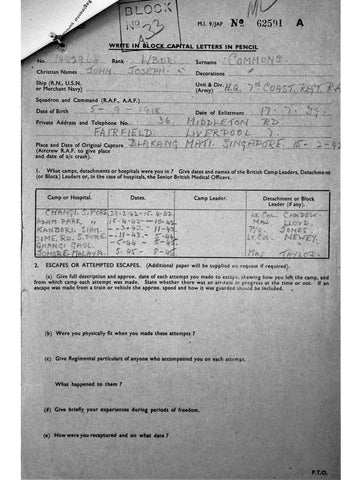 BLOCK
No 23
A
M.I. 9/JAP No 62591 A
WRITE IN BLOCK CAPITAL LETTERS IN PENCIL
No. Rank L/BDR Surname COMMONS.
Christian Names JOHN. JOSEPH. Decorations
Ship (R.N., U.S.N. or Merchant Navy) Unit & Div. (Army) H.Q. 7th COAST. REGT. R.A
Squadron and Command (R.A.F., A.A.F.)
Date of Birth 5-9-1918 Date of Enlistment
Private Address and Telephone No. 36. MIDDLETON RD
FAIRFIELD. LIVERPOOL 7.
Place and Date of Original Capture BLAKANG MATI. SINGAPORE. 15-2-42
(Aircrew R.A.F. to give place
and date of a/c crash).
1. What camps, detachments or hospitals were you in? Give dates and names of the British Camp Leaders, Detachment
(or Block) Leaders or, in case of hospitals, the Senior British Medical Officers.
Camp or Hospital. Dates. Camp Leader. Detachment or Block Leader (if any).
CHANGI. S.PORE. Lt Col. CARDEW.
ADAM PARK. " 15-4-42 -- 10-42 MAJ LLOYD.
KANBURI. SIAM. --3-43. -- 11-43. P/O JONES.
SIME. RD. S.PORE. --11-43. -- 5-44. Lt COL. NEWEY.
CHANGI GAOL. --5-44 -- 5-45. "
JOHORE. MALAYA. 5-45 - 8-45. MAJ TAYLOR.
2. ESCAPES OR ATTEMPTED ESCAPES. (Additional paper will be supplied on request if required).
(a) Give full description and approx. date of each attempt you made to escape, showing how you left the camp, and
from which camp each attempt was made. State whether there was an air-raid in progress at the time or not. If an
escape was made from a train or vehicle the approx. speed and how it was guarded should be included.
(b) Were you physically fit when you made these attempts?
(c) Give Regimental particulars of anyone who accompanied you on each attempt.
What happened to them?
(d) Give briefly your experiences during periods of freedom.
(e) How were you recaptured and on what date?
P.T.O.